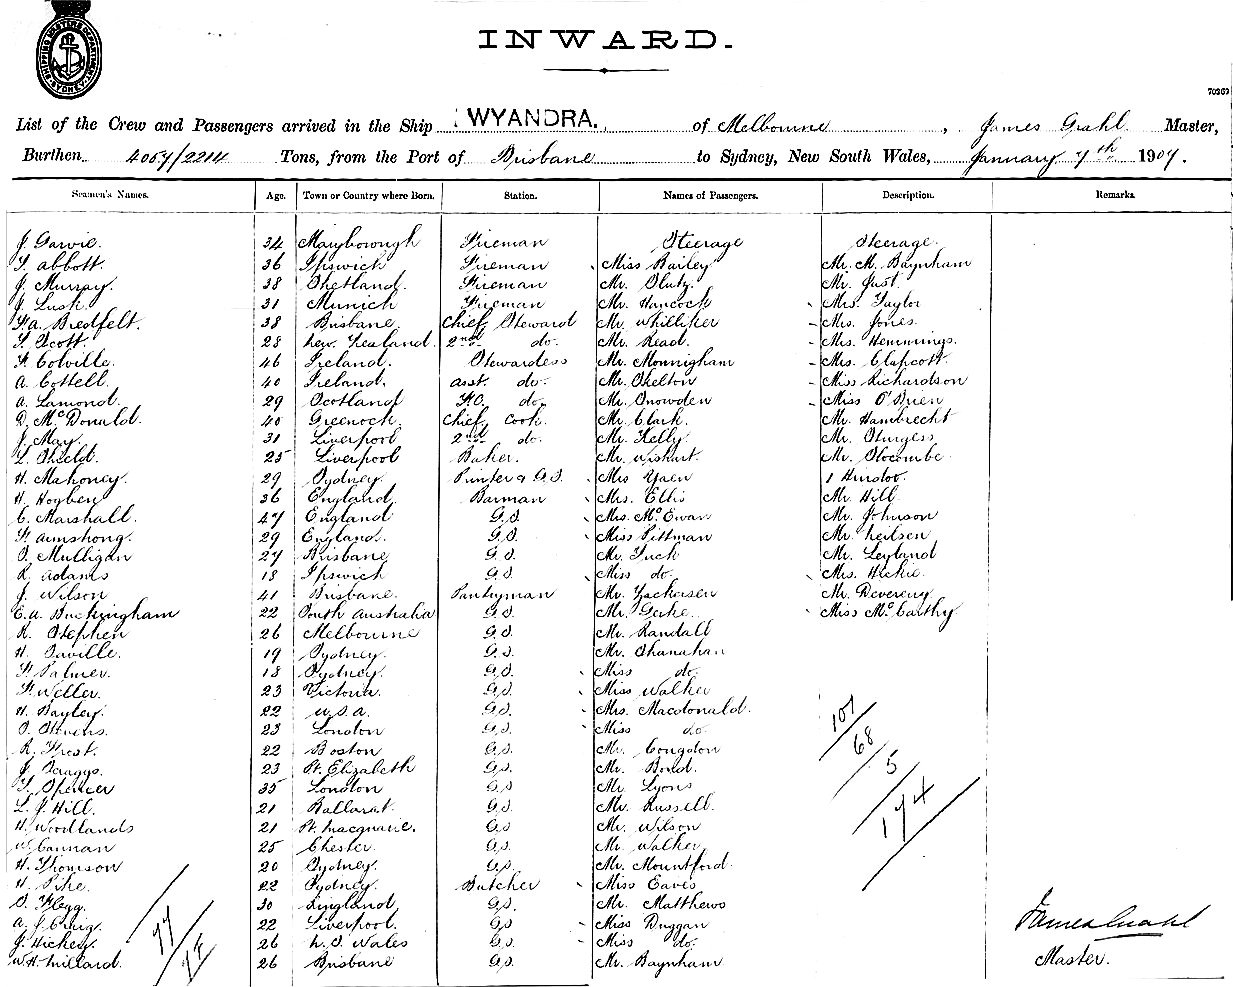 SHIPPING MASTERS DEPARTMENT SYDNEY
INWARD.
70267
List of the Crew and Passengers arrived in the Ship WYANDRA. of Melbourne, James Grahl Master,
Burthen 4057/2214 Tons, from the Port of Brisbane to Sydney, New South Wales, January 7th 1907.
Seamen's Names. Age. Town or Country where Born. Station. Names of Passengers. Description. Remarks.
J. Garvie. 34 Maryborough Fireman Steerage Steerage.
T. Abbott. 36 Ipswich Fireman Miss Bailey Mr. M. Baynham
J. Murray. 38 Shetland. Fireman Mr. Slutz. Mr. Just.
J. Lusk. 31 Munich Fireman Mr. Hancock Mrs. Taylor
Bredfelt. 38 Brisbane. Chief Steward Mr. Whilliker Mrs. Jones.
T. Scott. 28 New Zealand. 2nd do. Mr. Read. Mrs. Hemmings.
F. Colville. 46 Ireland. Stewardess Mr. Monnigham Mrs. Clapcott.
A. Cottell. 40 Ireland. Asst. do. Mr. Skelton Miss Richardson
A. Lamond. 29 Scotland F.C. do. Mr. Snowden Miss O'Brien
D. McDonald. 40 Greenock. Chief Cook. Mr. Clark. Mr. Hambrecht
J. May. 31 Liverpool 2nd do. Mr. Kelly. Mr. Sturgess
L. Shield. 25 Liverpool Baker. Mr. Wishart. Mr. Slocombe.
H. Mahoney. 29 Sydney. Printer & G.S. Mrs Yaen 1 Hindoo.
H. Hogben 36 England. Barman Mrs. Ellis Mr. Hill.
C. Marshall. 47 England G.S. Mrs. McEwan Mr. Johnson
F. Armstrong. 29 England. G.S. Miss Pittman Mr. Neilsen
S. Mulligan 27 Brisbane G.S. Mr. Tuck Mr. Leyland
R. Adams 18 Ipswich G.S. Miss do. Mrs. Hickie.
J. Wilson 41 Brisbane. Pantryman Mr. Zackersen Mr. Devereny
E.A. Buckingham 22 South Australia G.S. Mr. Gerke. Miss McCarthy
R. Stephen 26 Melbourne G.S. Mr. Randall
H. Saville. 19 Sydney. G.S. Mr. Shanahan
F. Palmer. 18 Sydney. G.S. Miss do.
F. Weller. 23 Victoria. G.S. Miss Walker
H. Bayley. 22 U.S.A. G.S. Mrs. Macdonald.
S. Stevens. 23 London G.S. Miss do.
R. Frost. 22 Boston G.S. Mr. Congdon
J. Scraggs. 23 Pt. Elizabeth G.S. Mr. Bond.
T. Spencer 35 London G.S. Mr. Lyons
L. J. Hill. 21 Ballarat. G.S. Mr. Russell.
H. Woodlands 21 Pt. Macquarie. G.S. Mr. Wilson
W. Cannan 25 Chester. G.S. Mr. Walker
H. Thomson 20 Sydney. G.S. Mr. Mountford.
H. Pike. 22 Sydney. Butcher Miss Eaves
S. Flegg. 30 England G.S. Mr. Matthews
A. J. Craig. 22 Liverpool. G.S. Miss Duggan
J. Hickey. 26 N.S. Wales G.S. Miss do.
W.H. Millard. 26 Brisbane G.S. Mr. Baynham
107
68
5
174
77
James Grahl
Master.